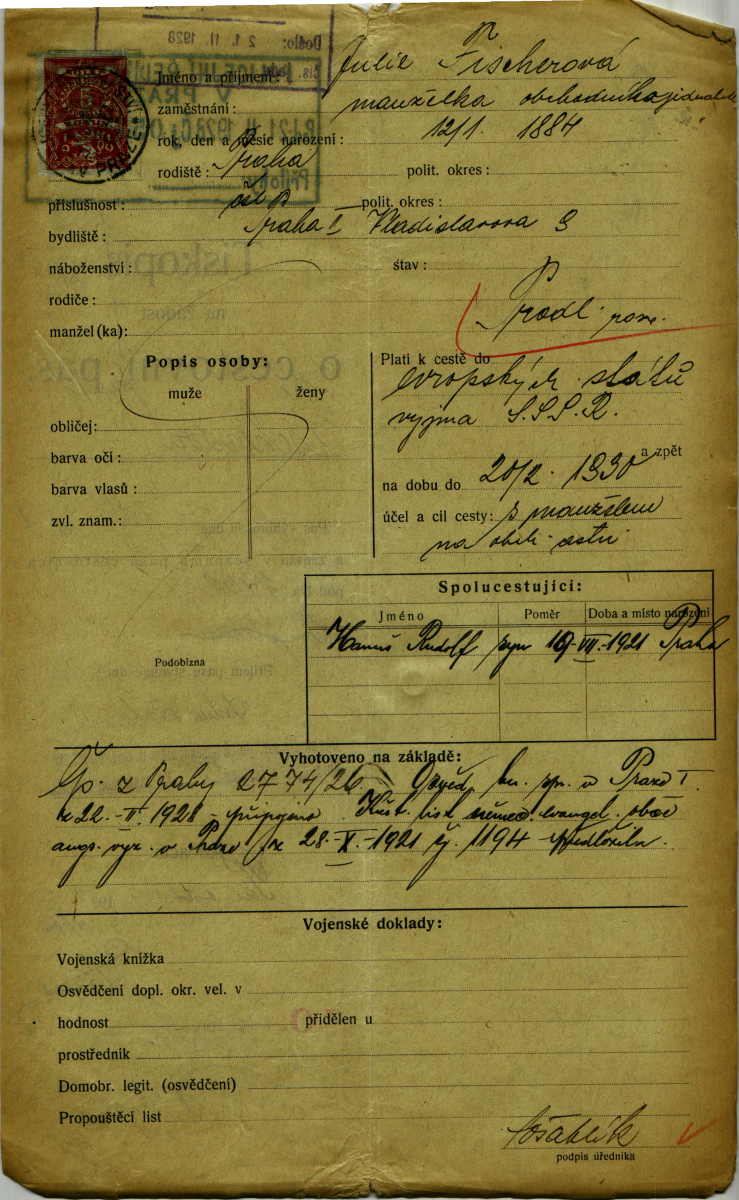 Došlo: 2 1. II. 1928
Jméno a příjmení: Julie Fischerová
zaměstnání: manželka obchodního jednatele
rok, den a měsíc narození: 12/1. 1884
rodiště: Praha polit. okres:
příslušnost: polit. okres:
bydliště: Praha I Vladislavova 9
náboženství: stav:
rodiče:
Prodl. pasu
manžel(ka):
Popis osoby:
muže ženy
obličej:
barva očí:
barva vlasů:
zvl. znam.:
Platí k cestě do
evropských států
vyjma S.S.S.R.
a zpět
na dobu do 20/2. 1930
účel a cíl cesty: s manželem
na obch. cestu
Podobizna
Spolucestující:
Jméno Poměr Doba a místo narození
Hanuš Rudolf syn 19-VII.-1921 Praha
Vyhotoveno na základě:
z Prahy 2774/26 v Praze I.
z 22.-II. 1928 - připojeno. Křest. list německ. evangel. obce
augs. vyz. v Praze z 28.-X.-1921 čj. 1194 předložila.
Vojenské doklady:
Vojenská knížka
Osvědčení dopl. okr. vel. v
hodnost přidělen u
prostředník
Domobr. legit. (osvědčení)
Propouštěcí list
podpis úředníka